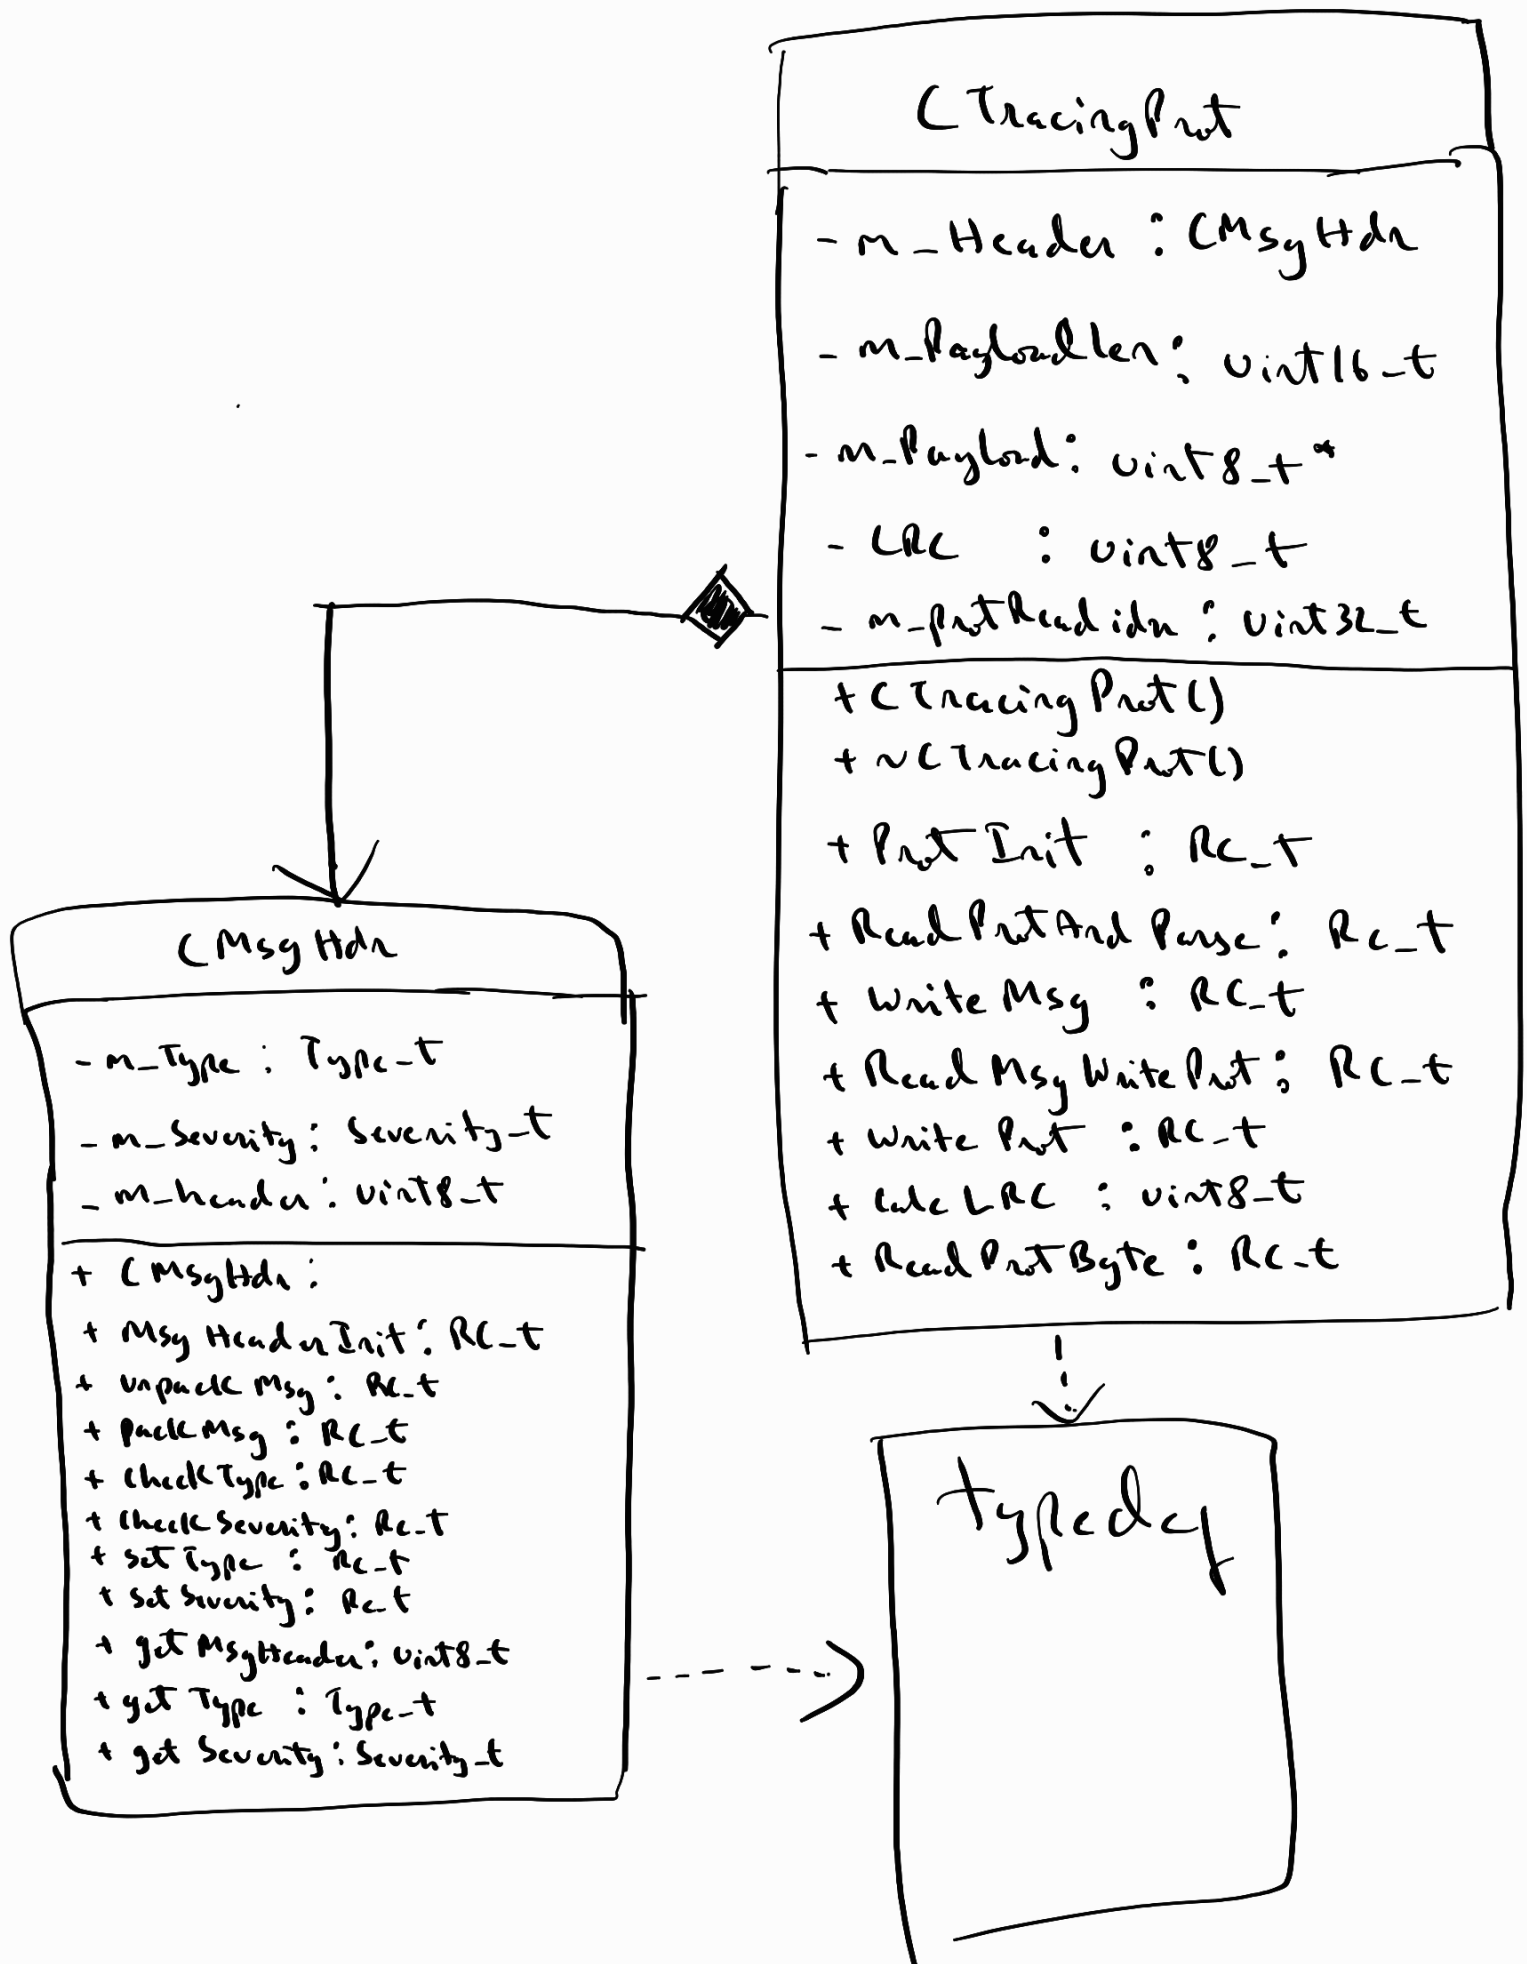 CTracingProt
- m_Header : CMsgHdr
- m_PayloadLen : uint16_t
- m_Payload : uint8_t *
- LRC : uint8_t
- m_protReadidx : uint32_t
+ CTracingProt()
+ ~CTracingProt()
+ ProtInit : RC_t
+ ReadProtAndParse : RC_t
+ WriteMsg : RC_t
+ ReadMsgWriteProt : RC_t
+ WriteProt : RC_t
+ CalcLRC : uint8_t
+ ReadProtByte : RC_t
CMsgHdr
- m_Type : Type_t
- m_Severity : Severity_t
- m_header : uint8_t
+ CMsgHdr :
+ MsgHeaderInit : RC_t
+ unpackMsg : RC_t
+ packMsg : RC_t
+ checkType : RC_t
+ checkSeverity : RC_t
+ setType : RC_t
+ setSeverity : RC_t
+ getMsgHeader : uint8_t
+ getType : Type_t
+ getSeverity : Severity_t
typedef